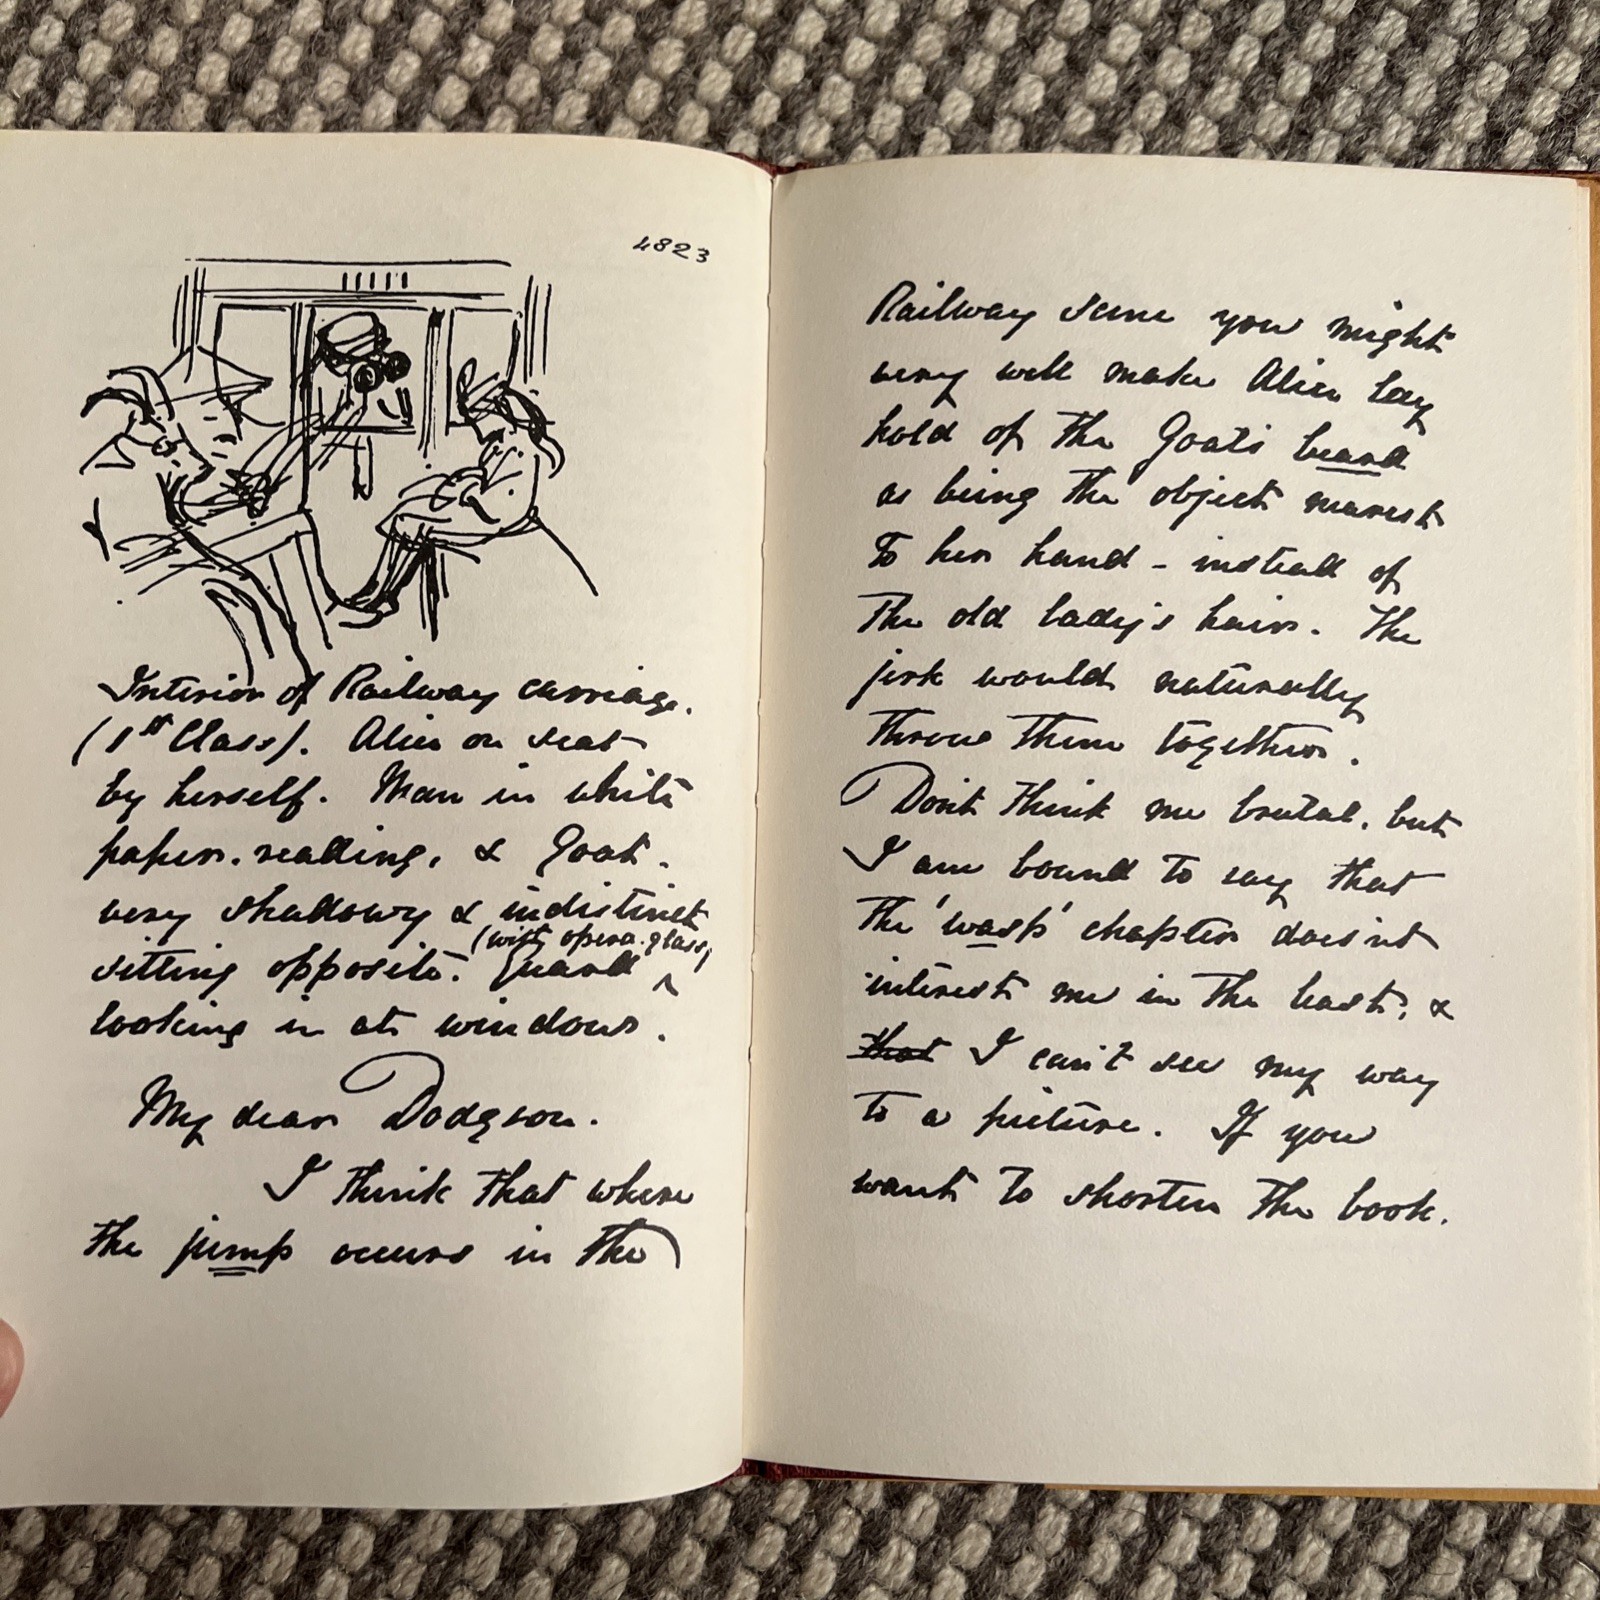 4823
Interior of Railway carriage.
(1st Class). Alice on seat
by herself. Man in white
paper. reading, & Goat.
very shadowy & indistinct
sitting opposite. Guard ^ (with opera-glass)
looking in at window.
My dear Dodgson.
I think that when
the jump occurs in the
Railway scene you might
very well make Alice lay
hold of the Goat's beard
as being the object nearest
to her hand - instead of
the old lady's hair. The
jerk would naturally
throw them together.
Don't think me brutal, but
I am bound to say that
the 'wasp' chapter doesn't
interest me in the least, &
that I can't see my way
to a picture. If you
want to shorten the book.